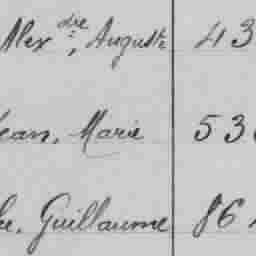 Alexdre, Auguste 43
Jean, Marie 53
Guillaume 86